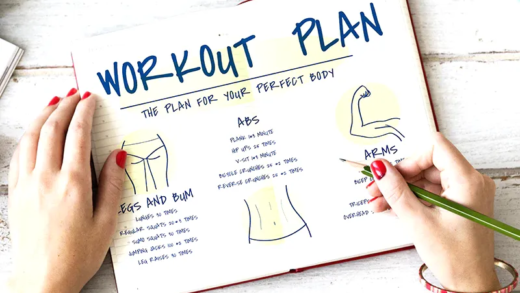 WORKOUT PLAN
THE PLAN FOR YOUR PERFECT BODY
ABS
PLANK 1x1 MINUTE
HIP UPS 20 TIMES
V-SIT 1x1 MINUTE
BICYCLE CRUNCHES 20 x2 TIMES
REVERSE CRUNCHES 20 x2 TIMES
LEGS AND BUM
LUNGES 30 TIMES
REGULAR SQUATS 20 x2 TIMES
SUMO SQUATS 30 TIMES
JUMPING JACKS 20 x2 TIMES
LEG RAISES 30 TIMES
ARMS
TIMES
OVERHEAD